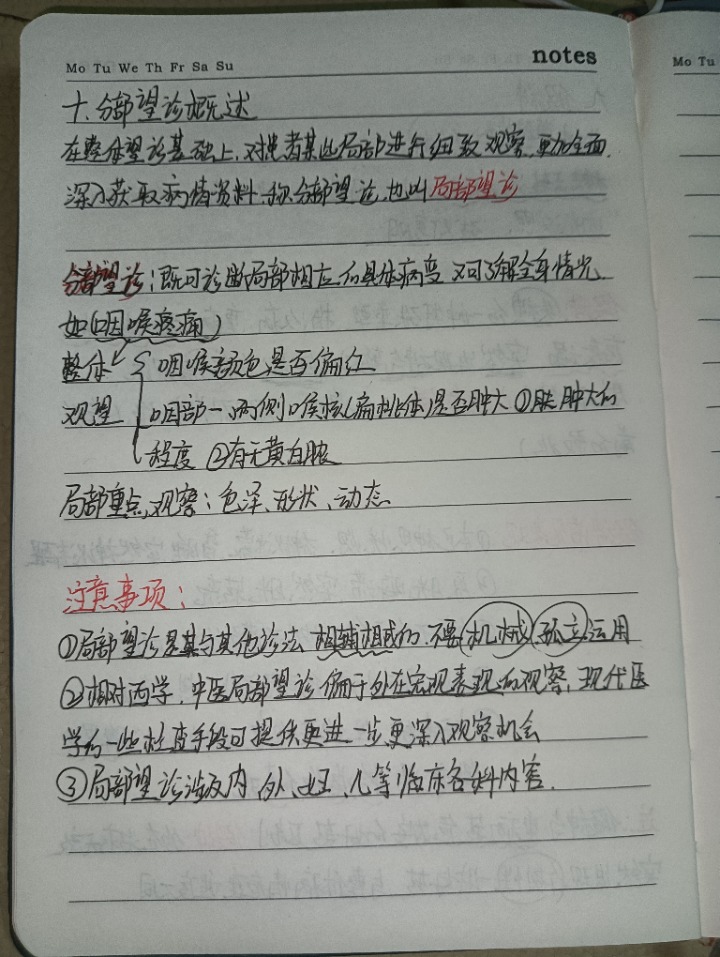 Mo Tu We Th Fr Sa Su
notes
Mo Tu
十、分部望诊概述
在整体望诊基础上,对患者某些局部进行细致观察,更加全面、
深入获取病情资料,称分部望诊,也叫局部望诊
分部望诊:既可诊断局部相应的具体病变,又可了解全身情况
如(咽喉疼痛)
整体 咽喉颜色是否偏红
观望 咽部一两侧喉核(扁桃体)是否肿大 ①肿大的
程度 ②有无黄白脓
局部重点观察:色泽、形状、动态
注意事项:
①局部望诊是其与其他诊法 相辅相成的,不要机械孤立运用
②相对西学,中医局部望诊偏于外在宏观表现的观察,现代医
学的一些检查手段可提供更进一步更深入观察机会
③局部望诊涉及内、外、妇、儿等临床各科内容.